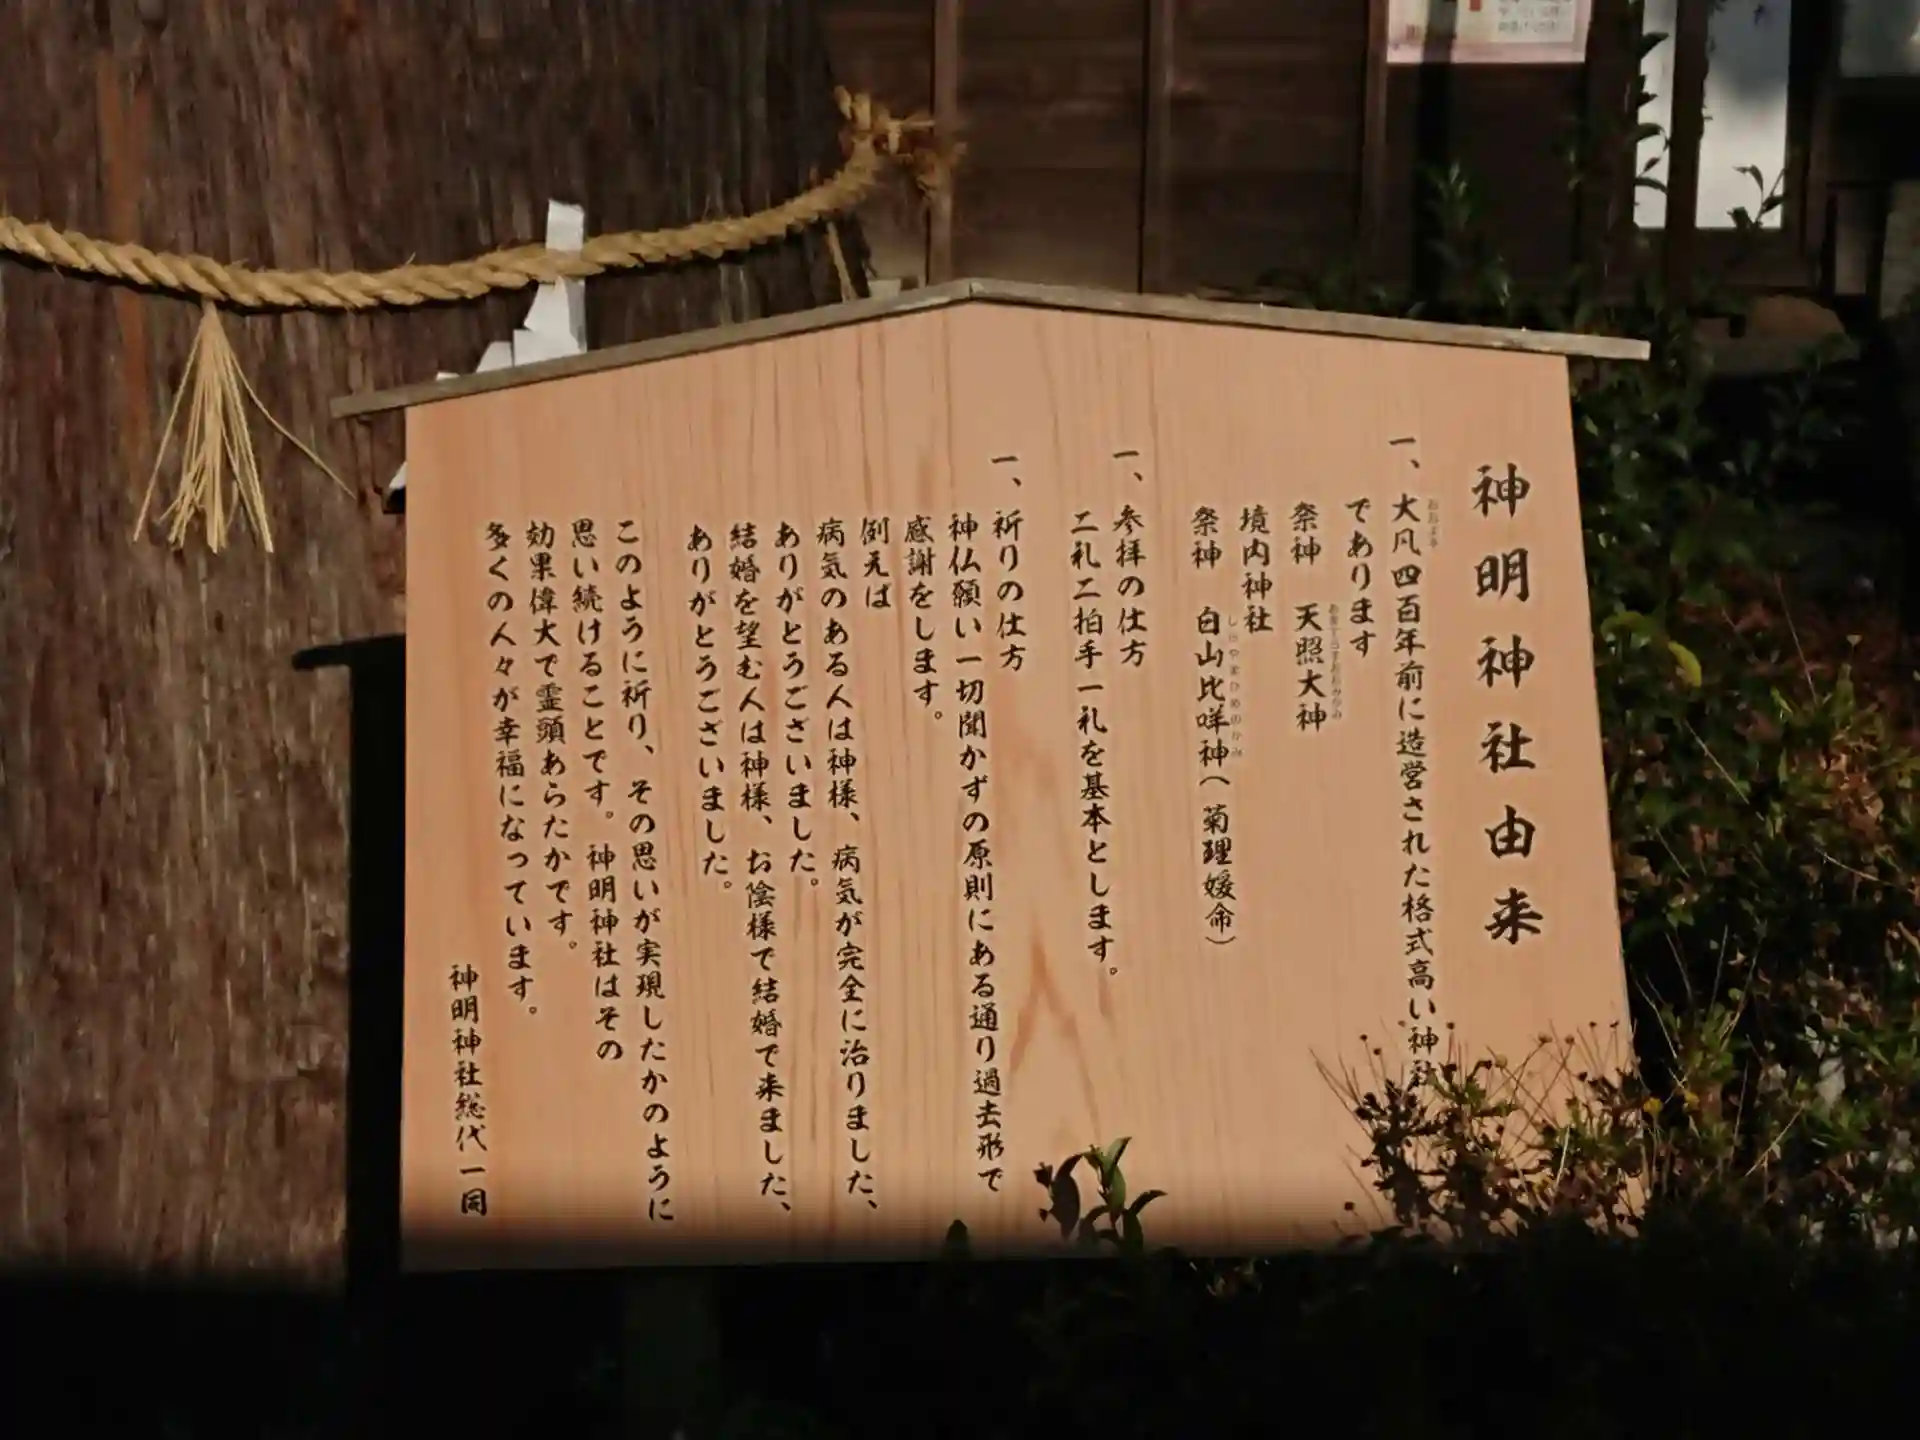 神明神社由来
一、大凡四百年前に造営された格式高い神社
であります
祭神 天照大神
境内神社
祭神 白山比咩神(菊理媛命)
一、参拝の仕方
二礼二拍手一礼を基本とします。
一、祈りの仕方
神仏願い一切聞かずの原則にある通り過去形で
感謝をします。
例えば
病気のある人は神様、病気が完全に治りました、
ありがとうございました。
結婚を望む人は神様、お陰様で結婚で来ました、
ありがとうございました。
このように祈り、その思いが実現したかのように
思い続けることです。神明神社はその
効果偉大で霊頭あらたかです。
多くの人々が幸福になっています。
神明神社総代一同